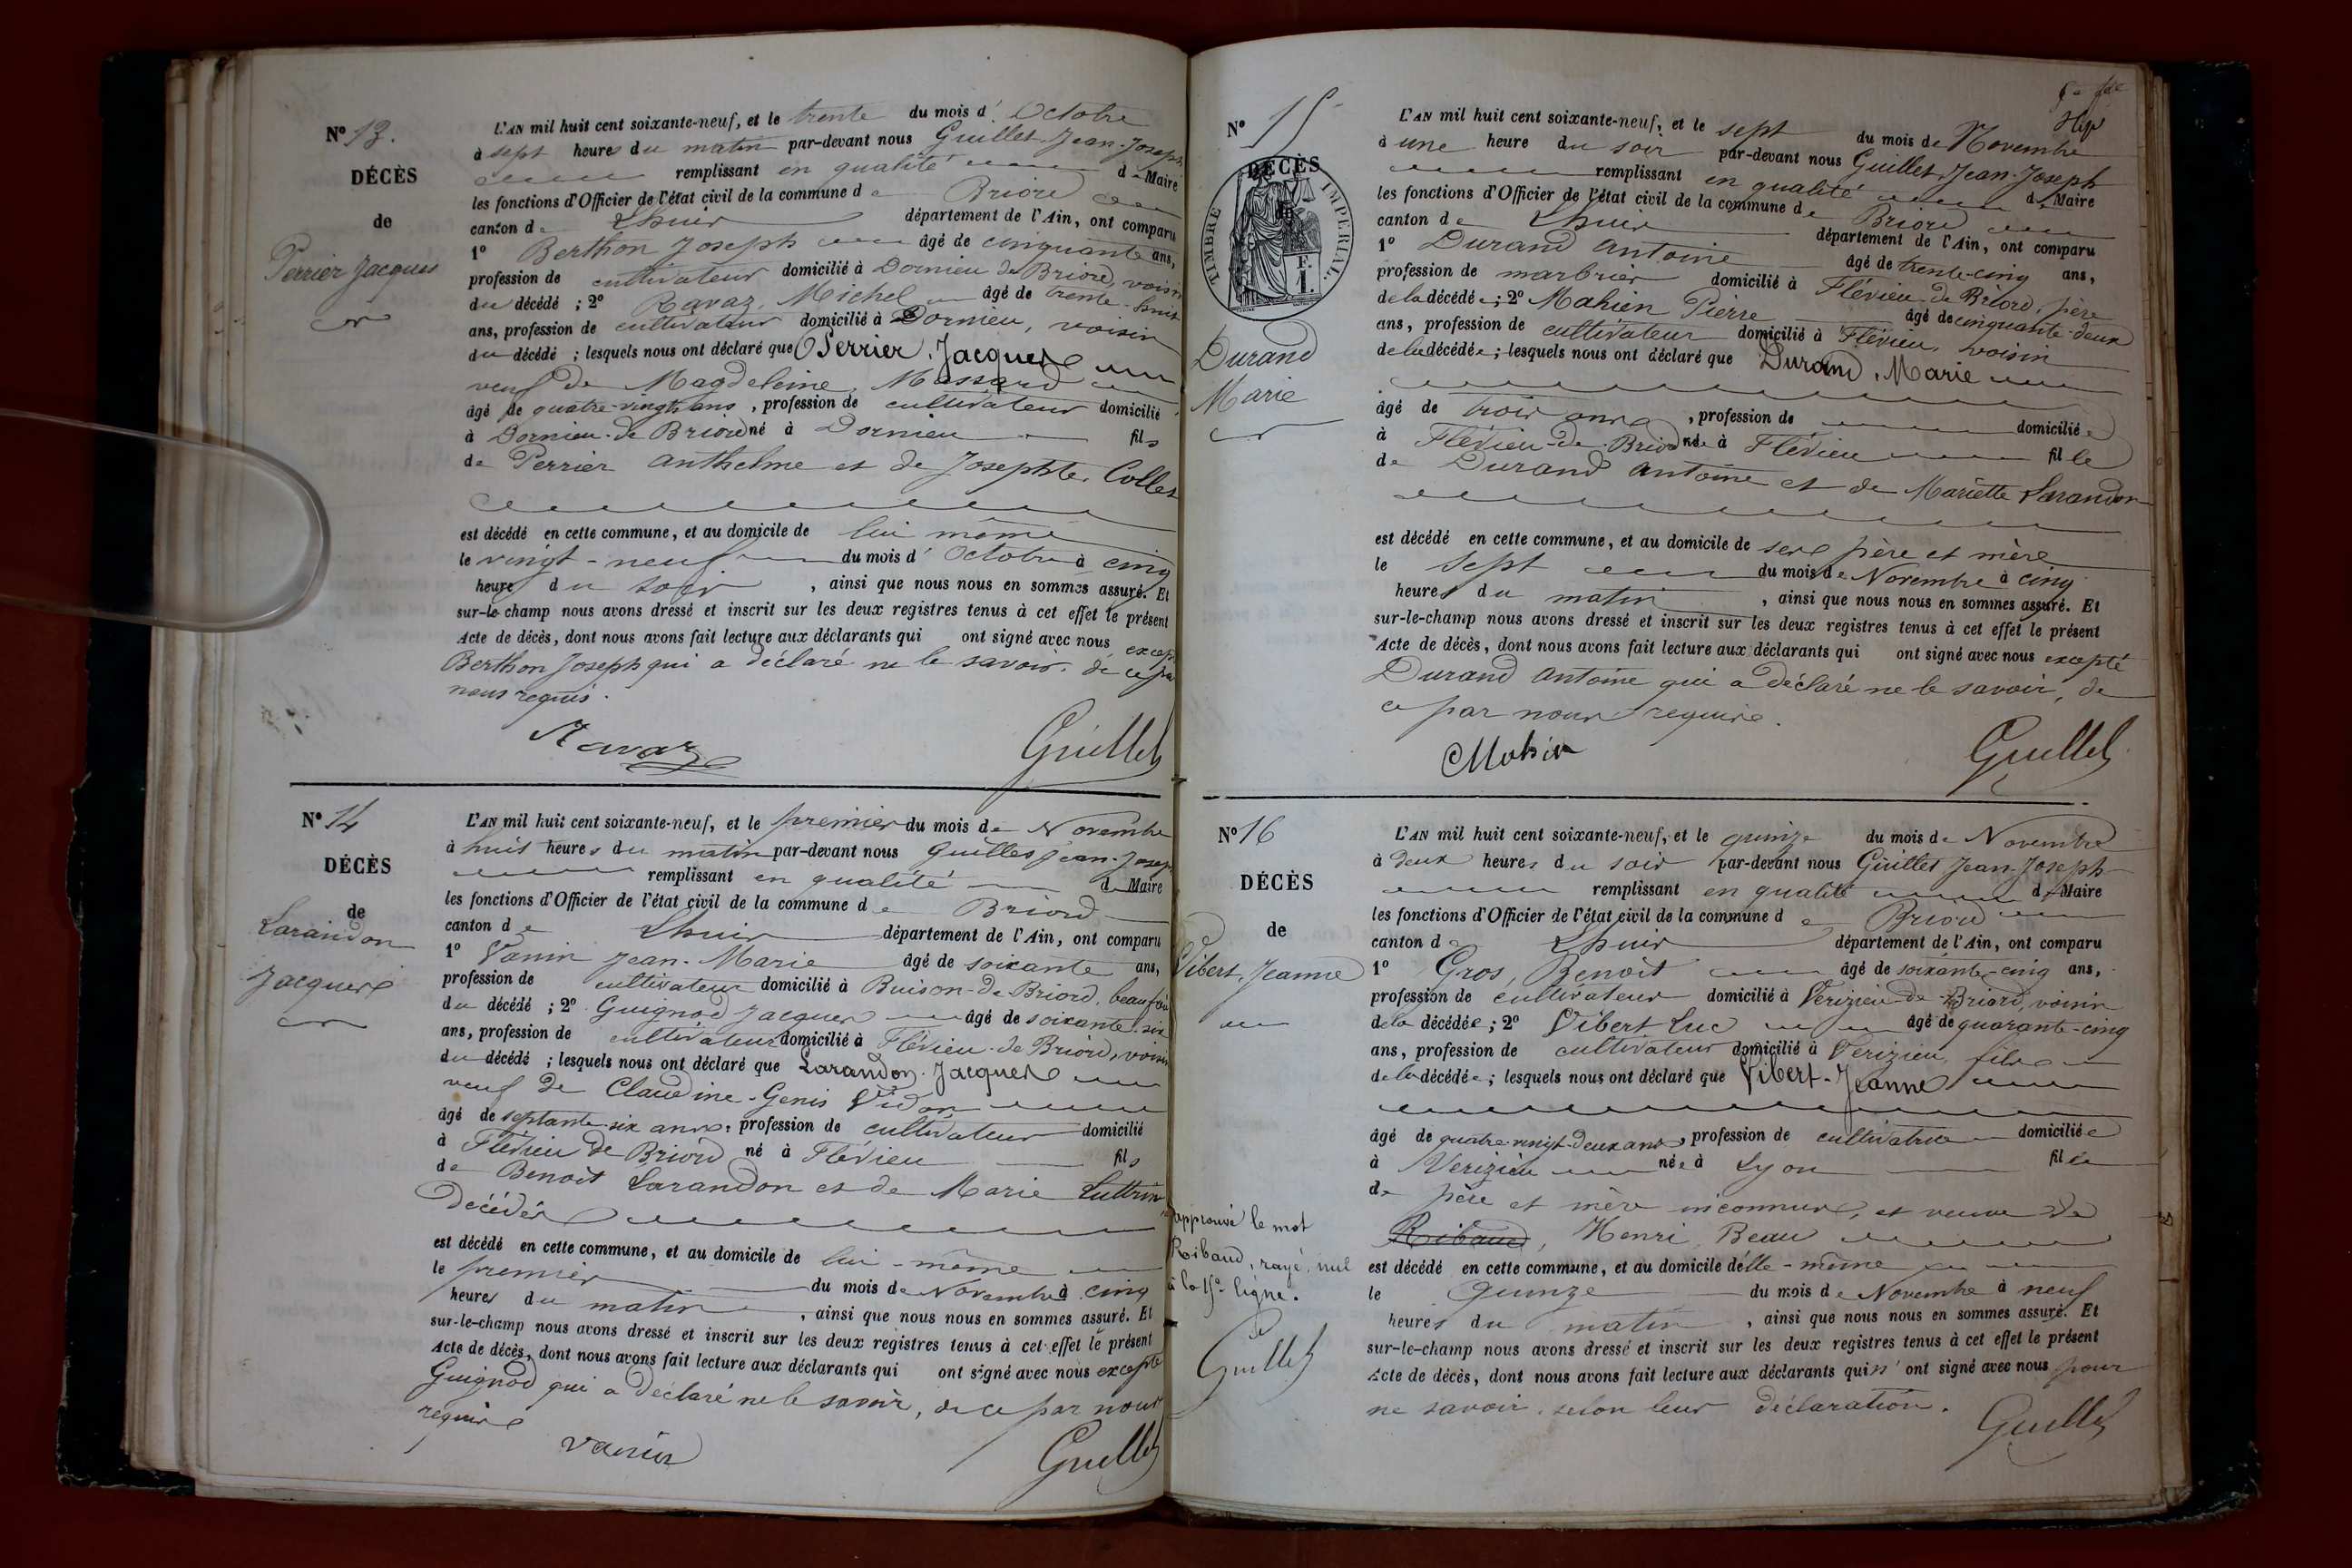 N° 13.
DÉCÈS
de
Perrier Jacques
L'AN mil huit cent soixante-neuf, et le trente du mois d' Octobre
à sept heures du matin par-devant nous Guillet Jean-Joseph
remplissant en qualité de Maire
les fonctions d'Officier de l'état civil de la commune de Briord
canton de Lhuis département de l'Ain, ont comparu
1° Berthon Joseph âgé de cinquante ans,
profession de cultivateur domicilié à Dornieu de Briord, voisin
du décédé ; 2° Ravaz, Michel âgé de trente-huit
ans, profession de cultivateur domicilié à Dornieu, voisin
du décédé ; lesquels nous ont déclaré que Perrier, Jacques
veuf de Magdeleine, Massard
âgé de quatre-vingts ans, profession de cultivateur domicilié
à Dornieu-de Briord né à Dornieu fils
de Perrier Anthelme et de Josephte Collet
est décédé en cette commune, et au domicile de lui même
le vingt-neuf du mois d' Octobre à cinq
heures du soir, ainsi que nous nous en sommes assuré. Et
sur-le champ nous avons dressé et inscrit sur les deux registres tenus à cet effet le présent
Acte de décès, dont nous avons fait lecture aux déclarants qui ont signé avec nous
Berthon Joseph qui a déclaré ne le savoir. de ce par
nous requis.
Ravaz
Guillet
N° 14
DÉCÈS
de
Larandon
Jacques
L'AN mil huit cent soixante-neuf, et le premier du mois de Novembre
à huit heures du matin par-devant nous Guillet Jean-Joseph
remplissant en qualité de Maire
les fonctions d'Officier de l'état civil de la commune de Briord
canton de Lhuis département de l'Ain, ont comparu
1° Vanin Jean-Marie âgé de soixante ans,
profession de cultivateur domicilié à Buison-de Briord, beau
du décédé ; 2° Guignod Jacques âgé de soixante-six
ans, profession de cultivateur domicilié à Flévieu-de Briord, voisin
du décédé ; lesquels nous ont déclaré que Larandon. Jacques
veuf de Claudine-Genis Vidon
âgé de septante-six ans, profession de cultivateur domicilié
à Flévieu de Briord né à Flévieu fils
de Benoit Larandon et de Marie Luttrin
décédés
est décédé en cette commune, et au domicile de lui-même
le premier du mois de Novembre à cinq
heures du matin, ainsi que nous nous en sommes assuré. Et
sur-le-champ nous avons dressé et inscrit sur les deux registres tenus à cet effet le présent
Acte de décès, dont nous avons fait lecture aux déclarants qui ont signé avec nous excepté
Guignod qui a déclaré ne le savoir, de ce par nous
requis
Vanin
Guillet
N° 15
DÉCÈS
TIMBRE IMPÉRIAL.
F. 1.
Durand
Marie
L'AN mil huit cent soixante-neuf, et le sept du mois de Novembre
à une heure du soir par-devant nous Guillet Jean-Joseph
remplissant en qualité de Maire
les fonctions d'Officier de l'état civil de la commune de Briord
canton de Lhuis département de l'Ain, ont comparu
1° Durand Antoine âgé de trente-cinq ans,
profession de marbrier domicilié à Flévieu-de Briord, père
de la décédée ; 2° Mahien Pierre âgé de cinquante-deux
ans, profession de cultivateur domicilié à Flévieu, voisin
de la décédée ; lesquels nous ont déclaré que Durand, Marie
âgé de trois ans, profession de domiciliée
à Flévieu-de-Briord née à Flévieu fille
de Durand Antoine et de Mariette Larandon
est décédé en cette commune, et au domicile de ses père et mère
le sept du mois de Novembre à cinq
heures du matin, ainsi que nous nous en sommes assuré. Et
sur-le-champ nous avons dressé et inscrit sur les deux registres tenus à cet effet le présent
Acte de décès, dont nous avons fait lecture aux déclarants qui ont signé avec nous excepté
Durand Antoine qui a déclaré ne le savoir, de
ce par nous requis.
Guillet
N° 16
DÉCÈS
de
Vibert, Jeanne
L'AN mil huit cent soixante-neuf, et le quinze du mois de Novembre
à deux heures du soir par-devant nous Guillet Jean-Joseph
remplissant en qualité de Maire
les fonctions d'Officier de l'état civil de la commune de Briord
canton de Lhuis département de l'Ain, ont comparu
1° Gros, Benoit âgé de soixante-cinq ans,
profession de cultivateur domicilié à Verizieu-de-Briord, voisin
de la décédée ; 2° Vibert Luc âgé de quarante-cinq
ans, profession de cultivateur domicilié à Verizieu, fils
de la décédée ; lesquels nous ont déclaré que Vibert-Jeanne
âgé de quatre-vingt-deux ans, profession de cultivatrice domiciliée
à Verizieu née à Lyon fille
de père et mère inconnus, et veuve de
Ribaud, Henri, Beau
est décédé en cette commune, et au domicile d'elle-même
le quinze du mois de Novembre à neuf
heures du matin, ainsi que nous nous en sommes assuré. Et
sur-le-champ nous avons dressé et inscrit sur les deux registres tenus à cet effet le présent
Acte de décès, dont nous avons fait lecture aux déclarants qui n'ont signé avec nous pour
ne savoir, selon leur déclaration.
Guillet
approuvé le mot
Ribaud, rayé, nul
à la 15e ligne.
Guillet